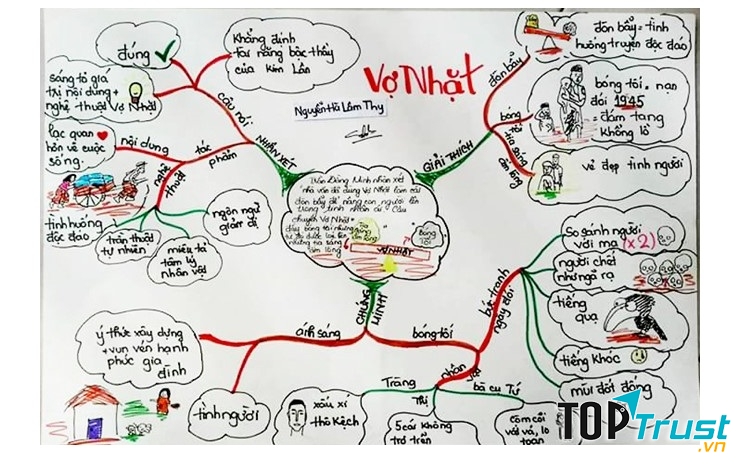 Vợ Nhặt
Nguyễn Hà Lâm Thy
NHẬN XÉT
câu nói
đúng
Khẳng định
tài năng bậc thầy
của Kim Lân
sáng tỏ giá
trị nội dung +
nghệ thuật Vợ Nhặt
tác
phẩm
nội dung
lạc quan
hơn về cuộc
sống
nghệ
thuật
tình huống
độc đáo
trần thuật
tự nhiên
miêu tả
tâm lý
nhân vật
ngôn ngữ
giản dị
GIẢI THÍCH
đòn bẩy
đòn bẩy = tình
huống truyện độc đáo
bóng
tối
bóng tối = nạn
đói 1945
= đám tang
khổng lồ
vẻ đẹp tình người
Trần Đăng Minh nhận xét
nhà văn đã dùng Vợ Nhặt làm cái
đòn bẩy để nâng con người lên
trong tình nhân ái. Câu
chuyện Vợ Nhặt
đầy bóng tối nhưng
những tia sáng
ấm lòng
Bóng
Tối
VỢ NHẶT
CHỨNG
MINH
ánh sáng
ý thức xây dựng
+ vun vén hạnh
phúc gia
đình
tình người
bóng tối
bức tranh
ngày đói
So sánh người
với ma (x2)
người chết
như ngả rạ
tiếng
quạ
tiếng khóc
mùi đốt đống
Tràng
xấu xí
thô kệch
Thị
5 cái không
trơ trẽn
bà cụ Tứ
Còm cõi
vất vả, lo
toan
TOPTrust
.vn